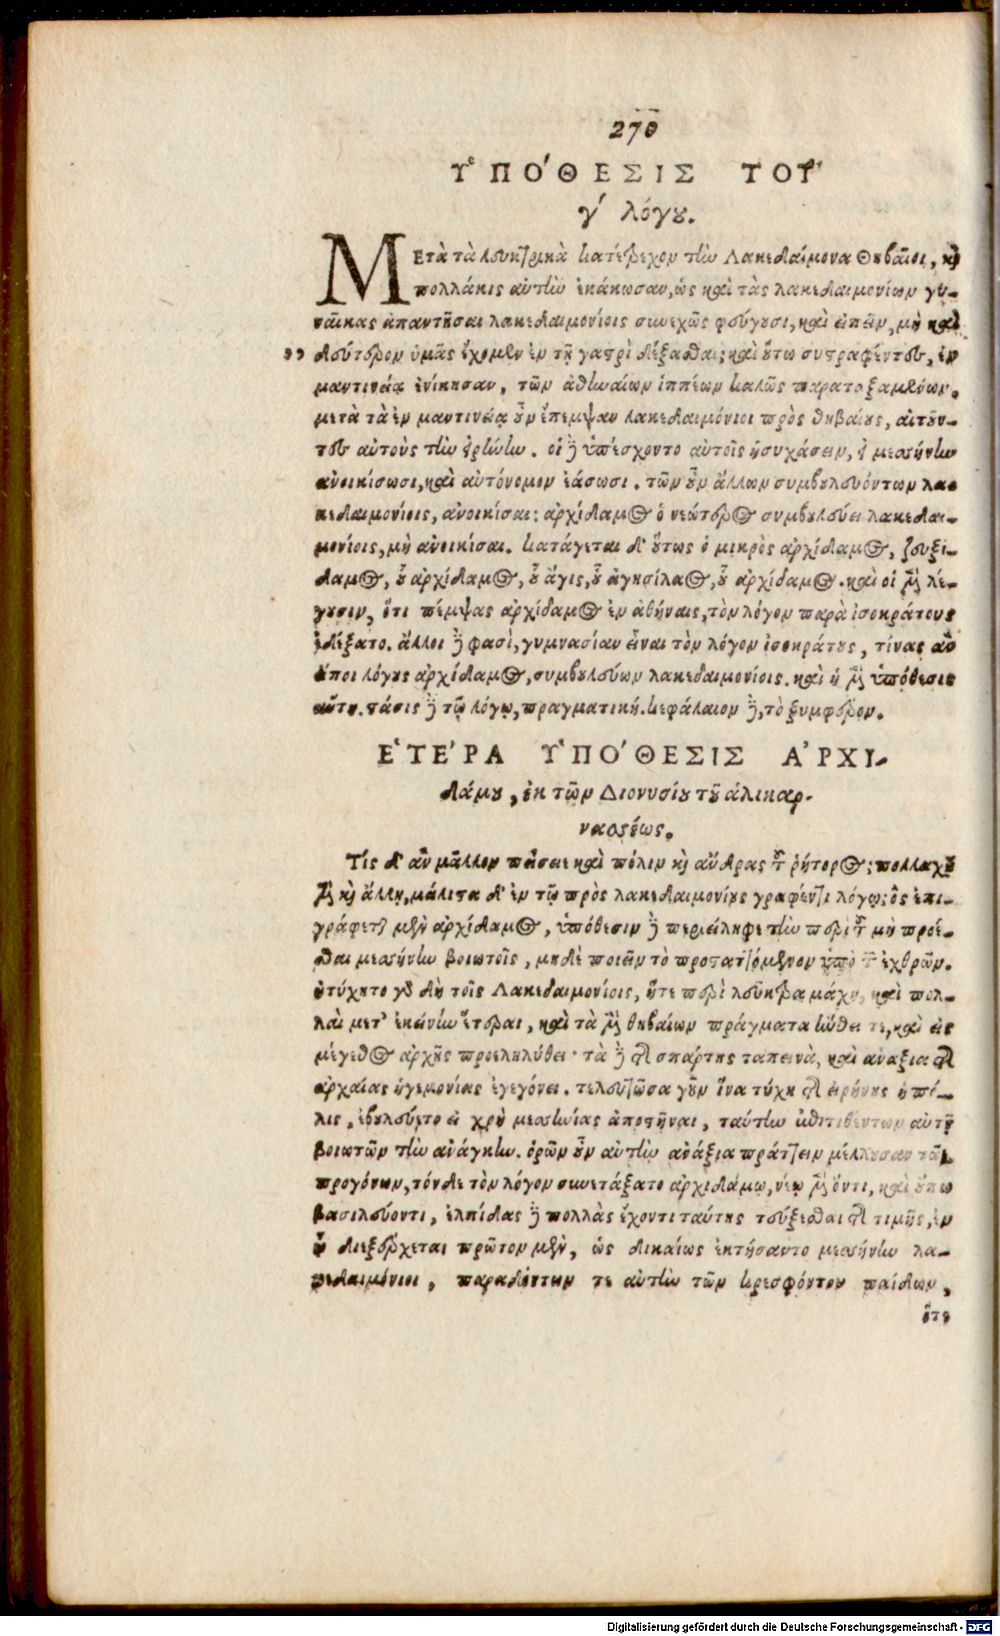 270
ὙΠΌΘΕΣΙΣ ΤΟΥ͂
γ′ λόγου.
ΜΕτὰ τὰ λευκτρικὰ κατέτρεχον τὴν Λακεδαίμονα Θηβαῖοι, καὶ
πολλάκις αὐτὴν ἐκάκωσαν, ὡς καὶ τὰς λακεδαιμονίων γυ-
ναῖκας ἀπαντῆσαι λακεδαιμονίοις συνεχῶς φεύγουσι, καὶ εἰπεῖν, μὴ καὶ
„ δεύτερον ὑμᾶς ἔχομεν ἐν τῇ γαστρὶ δέξασθαι; καὶ οὕτω συστραφέντες, ἐν
μαντινείᾳ ἐνίκησαν, τῶν ἀθηναίων ἱππέων καλῶς παραταξαμένων.
μετὰ τὰ ἐν μαντινείᾳ οὖν ἔπεμψαν λακεδαιμόνιοι πρὸς θηβαίους, αἰτοῦν-
τες αὐτοὺς τὴν εἰρήνην. οἱ δὲ ὑπέσχοντο αὐτοῖς ἡσυχάσειν, εἰ μεσσήνην
ἀνοικίσωσι, καὶ αὐτόνομον ἐάσωσι. τῶν οὖν ἄλλων συμβουλευόντων λα-
κεδαιμονίοις, ἀνοικίσαι: ἀρχίδαμος ὁ νεώτερος συμβουλεύει λακεδαι-
μονίοις, μὴ ἀνοικίσαι. κατάγεται δ' οὕτως ὁ μικρὸς ἀρχίδαμος, ζευξί-
δαμος, οὗ ἀρχίδαμος, οὗ ἄγις, οὗ ἀγησίλαος, οὗ ἀρχίδαμος. καὶ οἱ μὲν λέ-
γουσιν, ὅτι πέμψας ἀρχίδαμος ἐν ἀθήναις, τὸν λόγον παρὰ ἰσοκράτους
ἐδέξατο. ἄλλοι δὲ φασὶ, γυμνασίαν εἶναι τὸν λόγον ἰσοκράτους, τίνας ἂν
εἴποι λόγους ἀρχίδαμος, συμβουλεύων λακεδαιμονίοις. καὶ ἡ μὲν ὑπόθεσις
αὕτη. στάσις δὲ τῷ λόγῳ, πραγματική. κεφάλαιον δὲ, τὸ ξυμφέρον.
ἙΤΈΡΑ ὙΠΌΘΕΣΙΣ ἈΡΧΙ-
δάμου, ἐκ τῶν Διονυσίου τοῦ ἁλικαρ-
νασσέως.
Τίς δ' ἂν μᾶλλον πείσειε καὶ πόλιν καὶ ἄνδρας τοῦ ῥήτορος; πολλαχοῦ
μὲν καὶ ἄλλῃ, μάλιστα δ' ἐν τῷ πρὸς λακεδαιμονίους γραφέντι λόγῳ; ὃς ἐπι-
γράφεται μὲν ἀρχίδαμος, ὑπόθεσιν δὲ περιείληφε τὴν περὶ τοῦ μὴ προέ-
σθαι μεσσήνην βοιωτοῖς, μηδὲ ποιεῖν τὸ προσταττόμενον ὑπὸ τῶν ἐχθρῶν.
ἠτύχητο γὰρ δὴ τοῖς Λακεδαιμονίοις, ἥτε περὶ λεῦκτρα μάχη, καὶ πολ-
λαὶ μετ' ἐκείνην ἕτεραι, καὶ τὰ μὲν θηβαίων πράγματα ἤνθει τε, καὶ εἰς
μέγεθος ἀρχῆς προεληλύθει· τὰ δὲ τῆς σπάρτης ταπεινὰ, καὶ ἀνάξια τῆς
ἀρχαίας ἡγεμονίας ἐγεγόνει. τελευτῶσα γοῦν ἵνα τύχῃ τῆς εἰρήνης ἡ πό-
λις, ἐβουλεύετο εἰ χρὴ μεσσήνης ἀποστῆναι, ταύτην ἐπιτιθέντων αὐτῇ
βοιωτῶν τὴν ἀνάγκην. ὁρῶν οὖν αὐτὴν ἀνάξια πράττειν μέλλουσαν τῶν
προγόνων, τόνδε τὸν λόγον συνετάξατο ἀρχιδάμῳ, νέῳ μὲν ὄντι, καὶ οὔπω
βασιλεύοντι, ἐλπίδας δὲ πολλὰς ἔχοντι ταύτης τεύξεσθαι τῆς τιμῆς, ἐν
ᾧ διεξέρχεται πρῶτον μὲν, ὡς δικαίως ἐκτήσαντο μεσσήνην λα-
κεδαιμόνιοι, παραδόντων τε αὐτὴν τῶν κρεσφόντου παίδων,
ὅτε
Digitalisierung gefördert durch die Deutsche Forschungsgemeinschaft - DFG